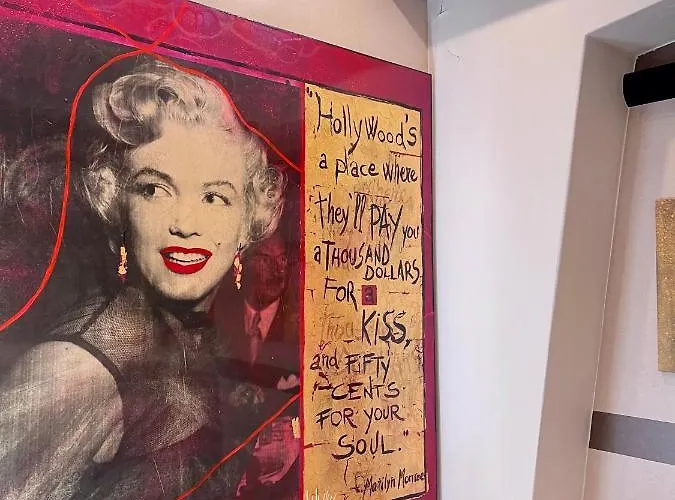 "HollyWood's
a place where
they'll PAY you
a THOUSAND
DOLLARS
FOR a
KISS,
and FIFTY
CENTS
FOR YOUR
SOUL."
Marilyn Monroe